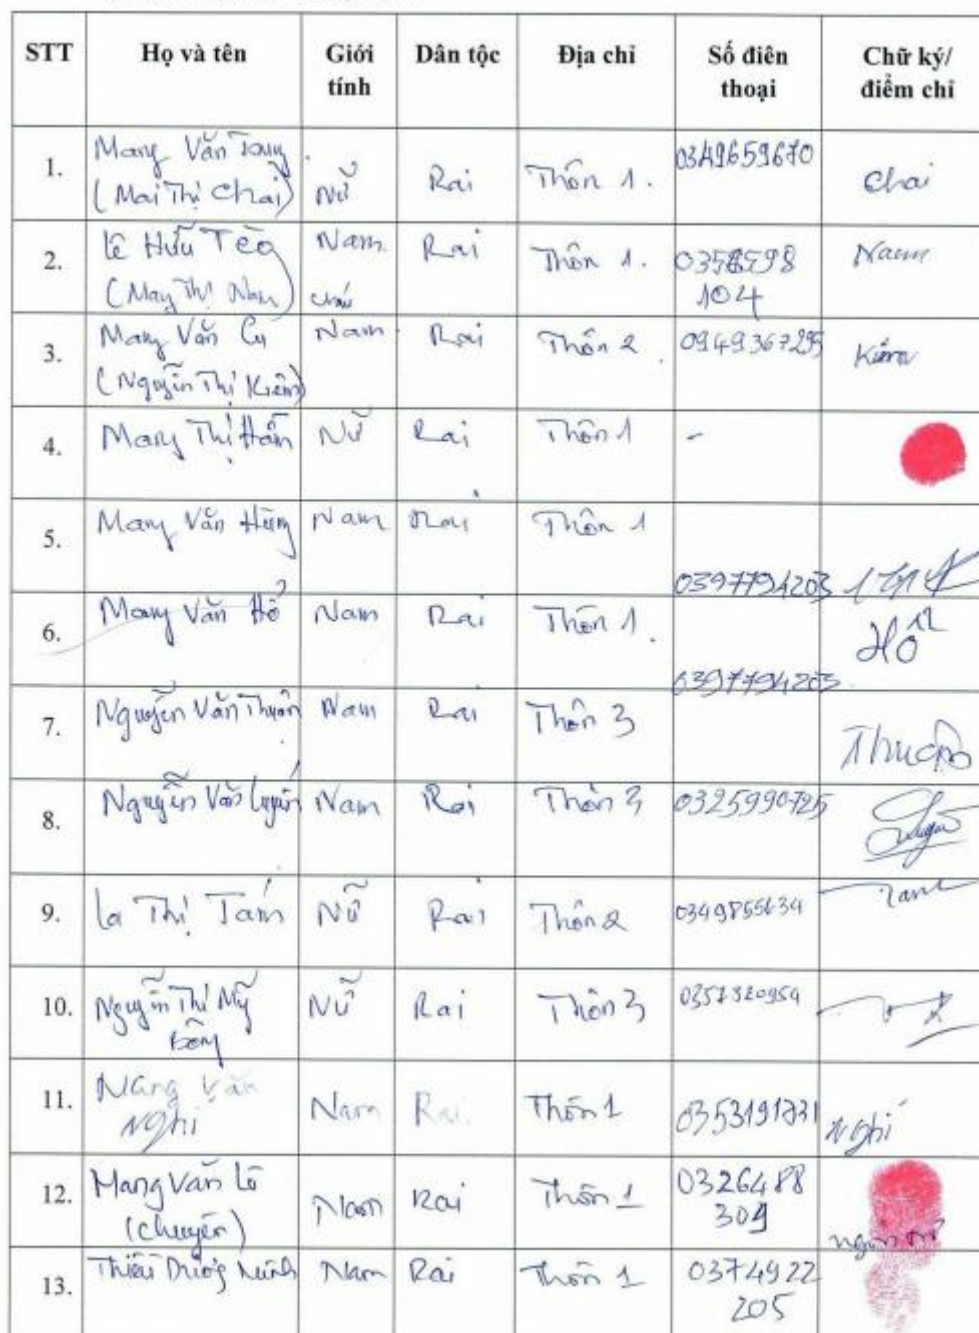 STT Họ và tên Giới tính Dân tộc Địa chỉ Số điên thoại Chữ ký/ điểm chỉ
1. Mang Văn (Mai Thị Chai) Nữ Rai Thôn 1. 0349659670 Chai
2. Lê Hữu Tèo (Mang Thị Nam) Nam Rai Thôn 1. 104 Nam
3. Mang Văn (Nguyễn Thị Kiêm) Nam Rai Thôn 2 0949367295 Kiêm
4. Mang Thị Nữ Rai Thôn 1 -
5. Mang Văn Hùng Nam Rai Thôn 1 0397794203
6. Mang Văn Hổ Nam Rai Thôn 1. 0397794203 Hổ
7. Nguyễn Văn Thuận Nam Rai Thôn 3 Thuận
8. Nguyễn Văn Nam Rai Thôn 3 0325990725
9. La Thị Tám Nữ Rai Thôn 2 0349855634
10. Nguyễn Thị Mỹ Nữ Rai Thôn 3
11. Văn Nghi Nam Rai Thôn 1 0353191731 Nghi
12. Mang Văn Lô (Chuyên) Nam Rai Thôn 1 0326488 309
13. Nam Rai Thôn 1 0374922 205